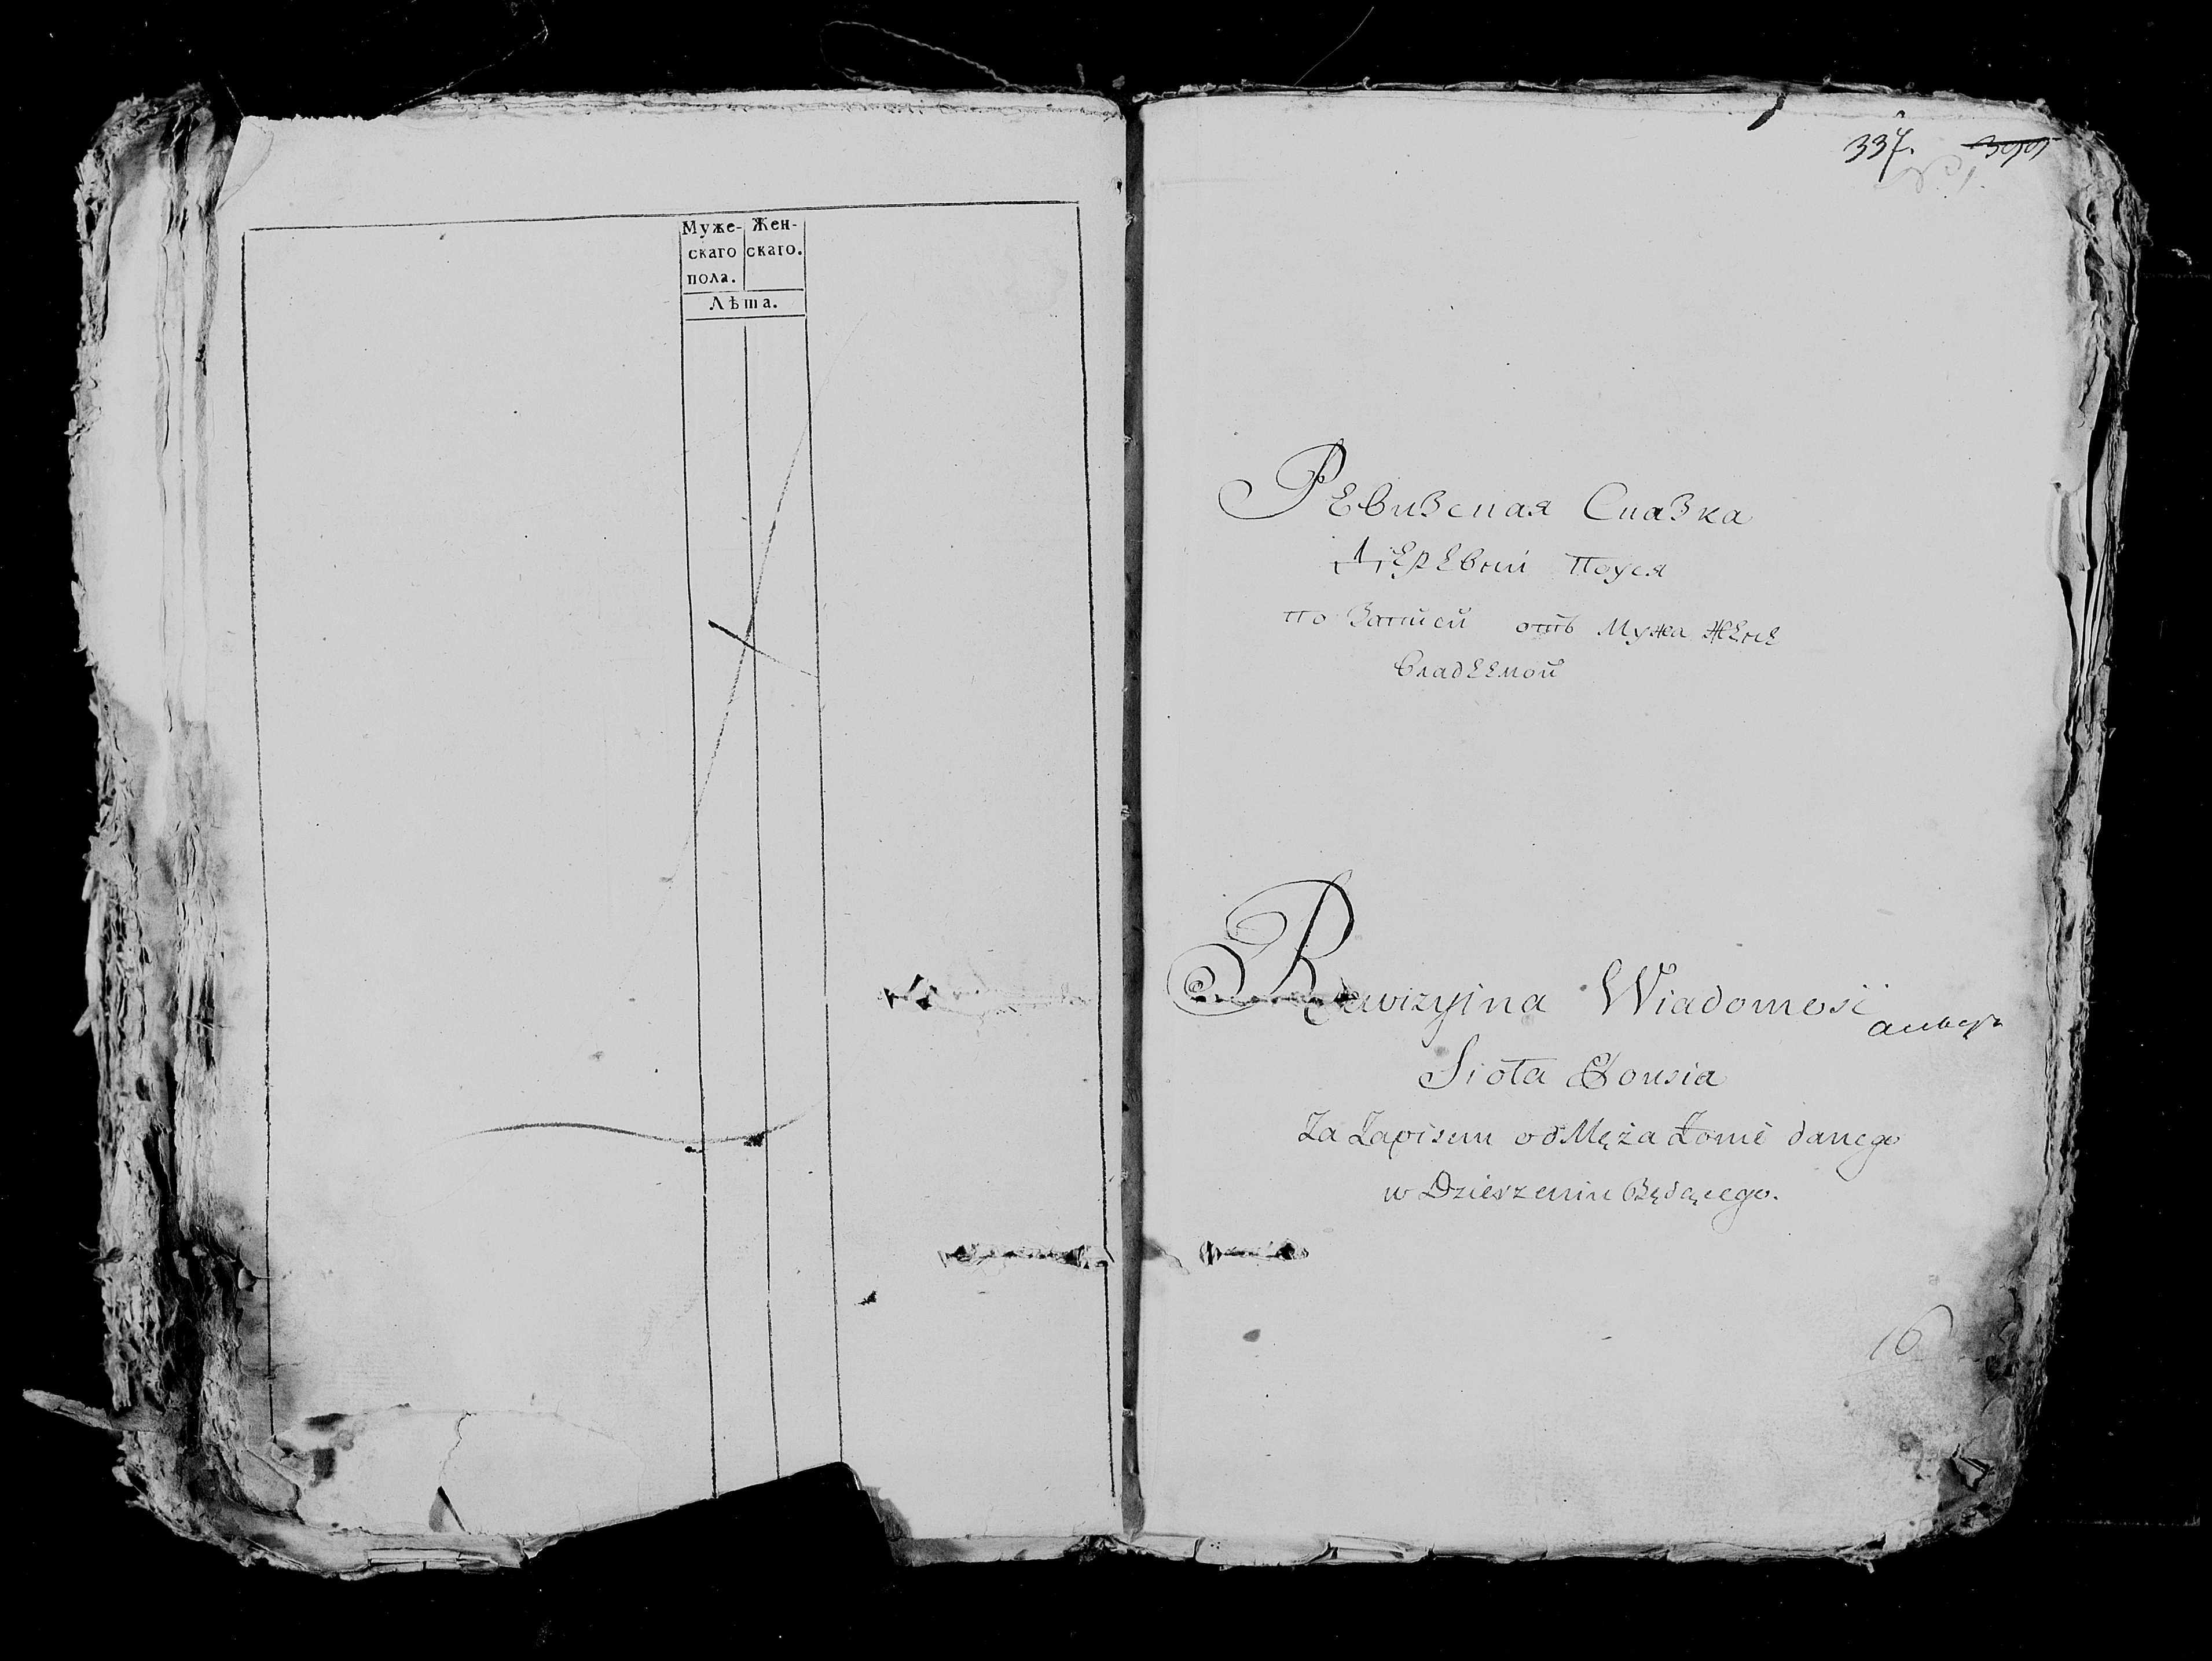 Муже- Жен-
скаго скаго.
пола.
Лѣта.
337. 399
Ревизская Сказка
Деревни Поуся
по Записи отъ Мужа Жене
владеемой
Rewizyina Wiadomość
Sioła Pousia
Za Zapisem od Męża Żonie danego
w Dzierzeniu Będącego.
16